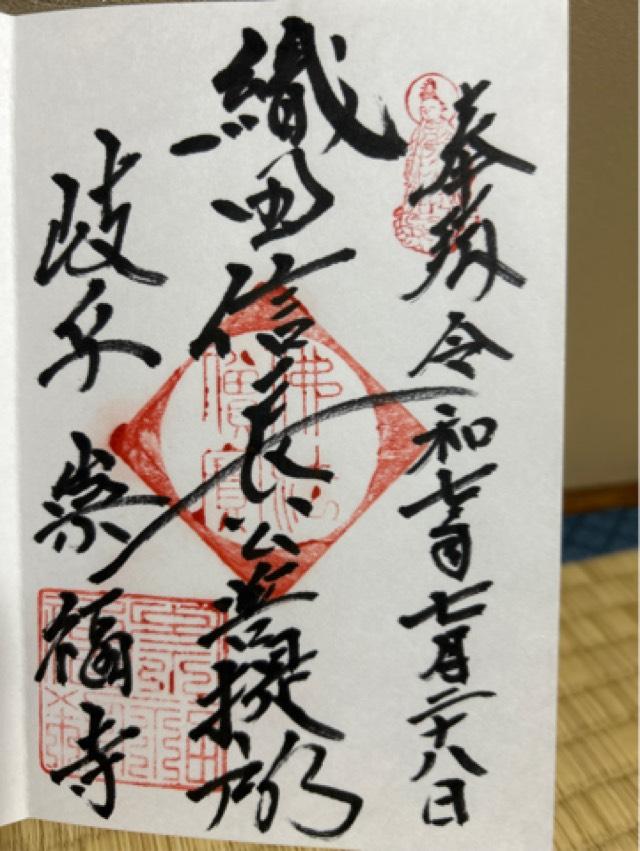 奉拝 令和七年七月二十八日
織田信長公菩提所
佛法僧寳
岐阜 崇福寺